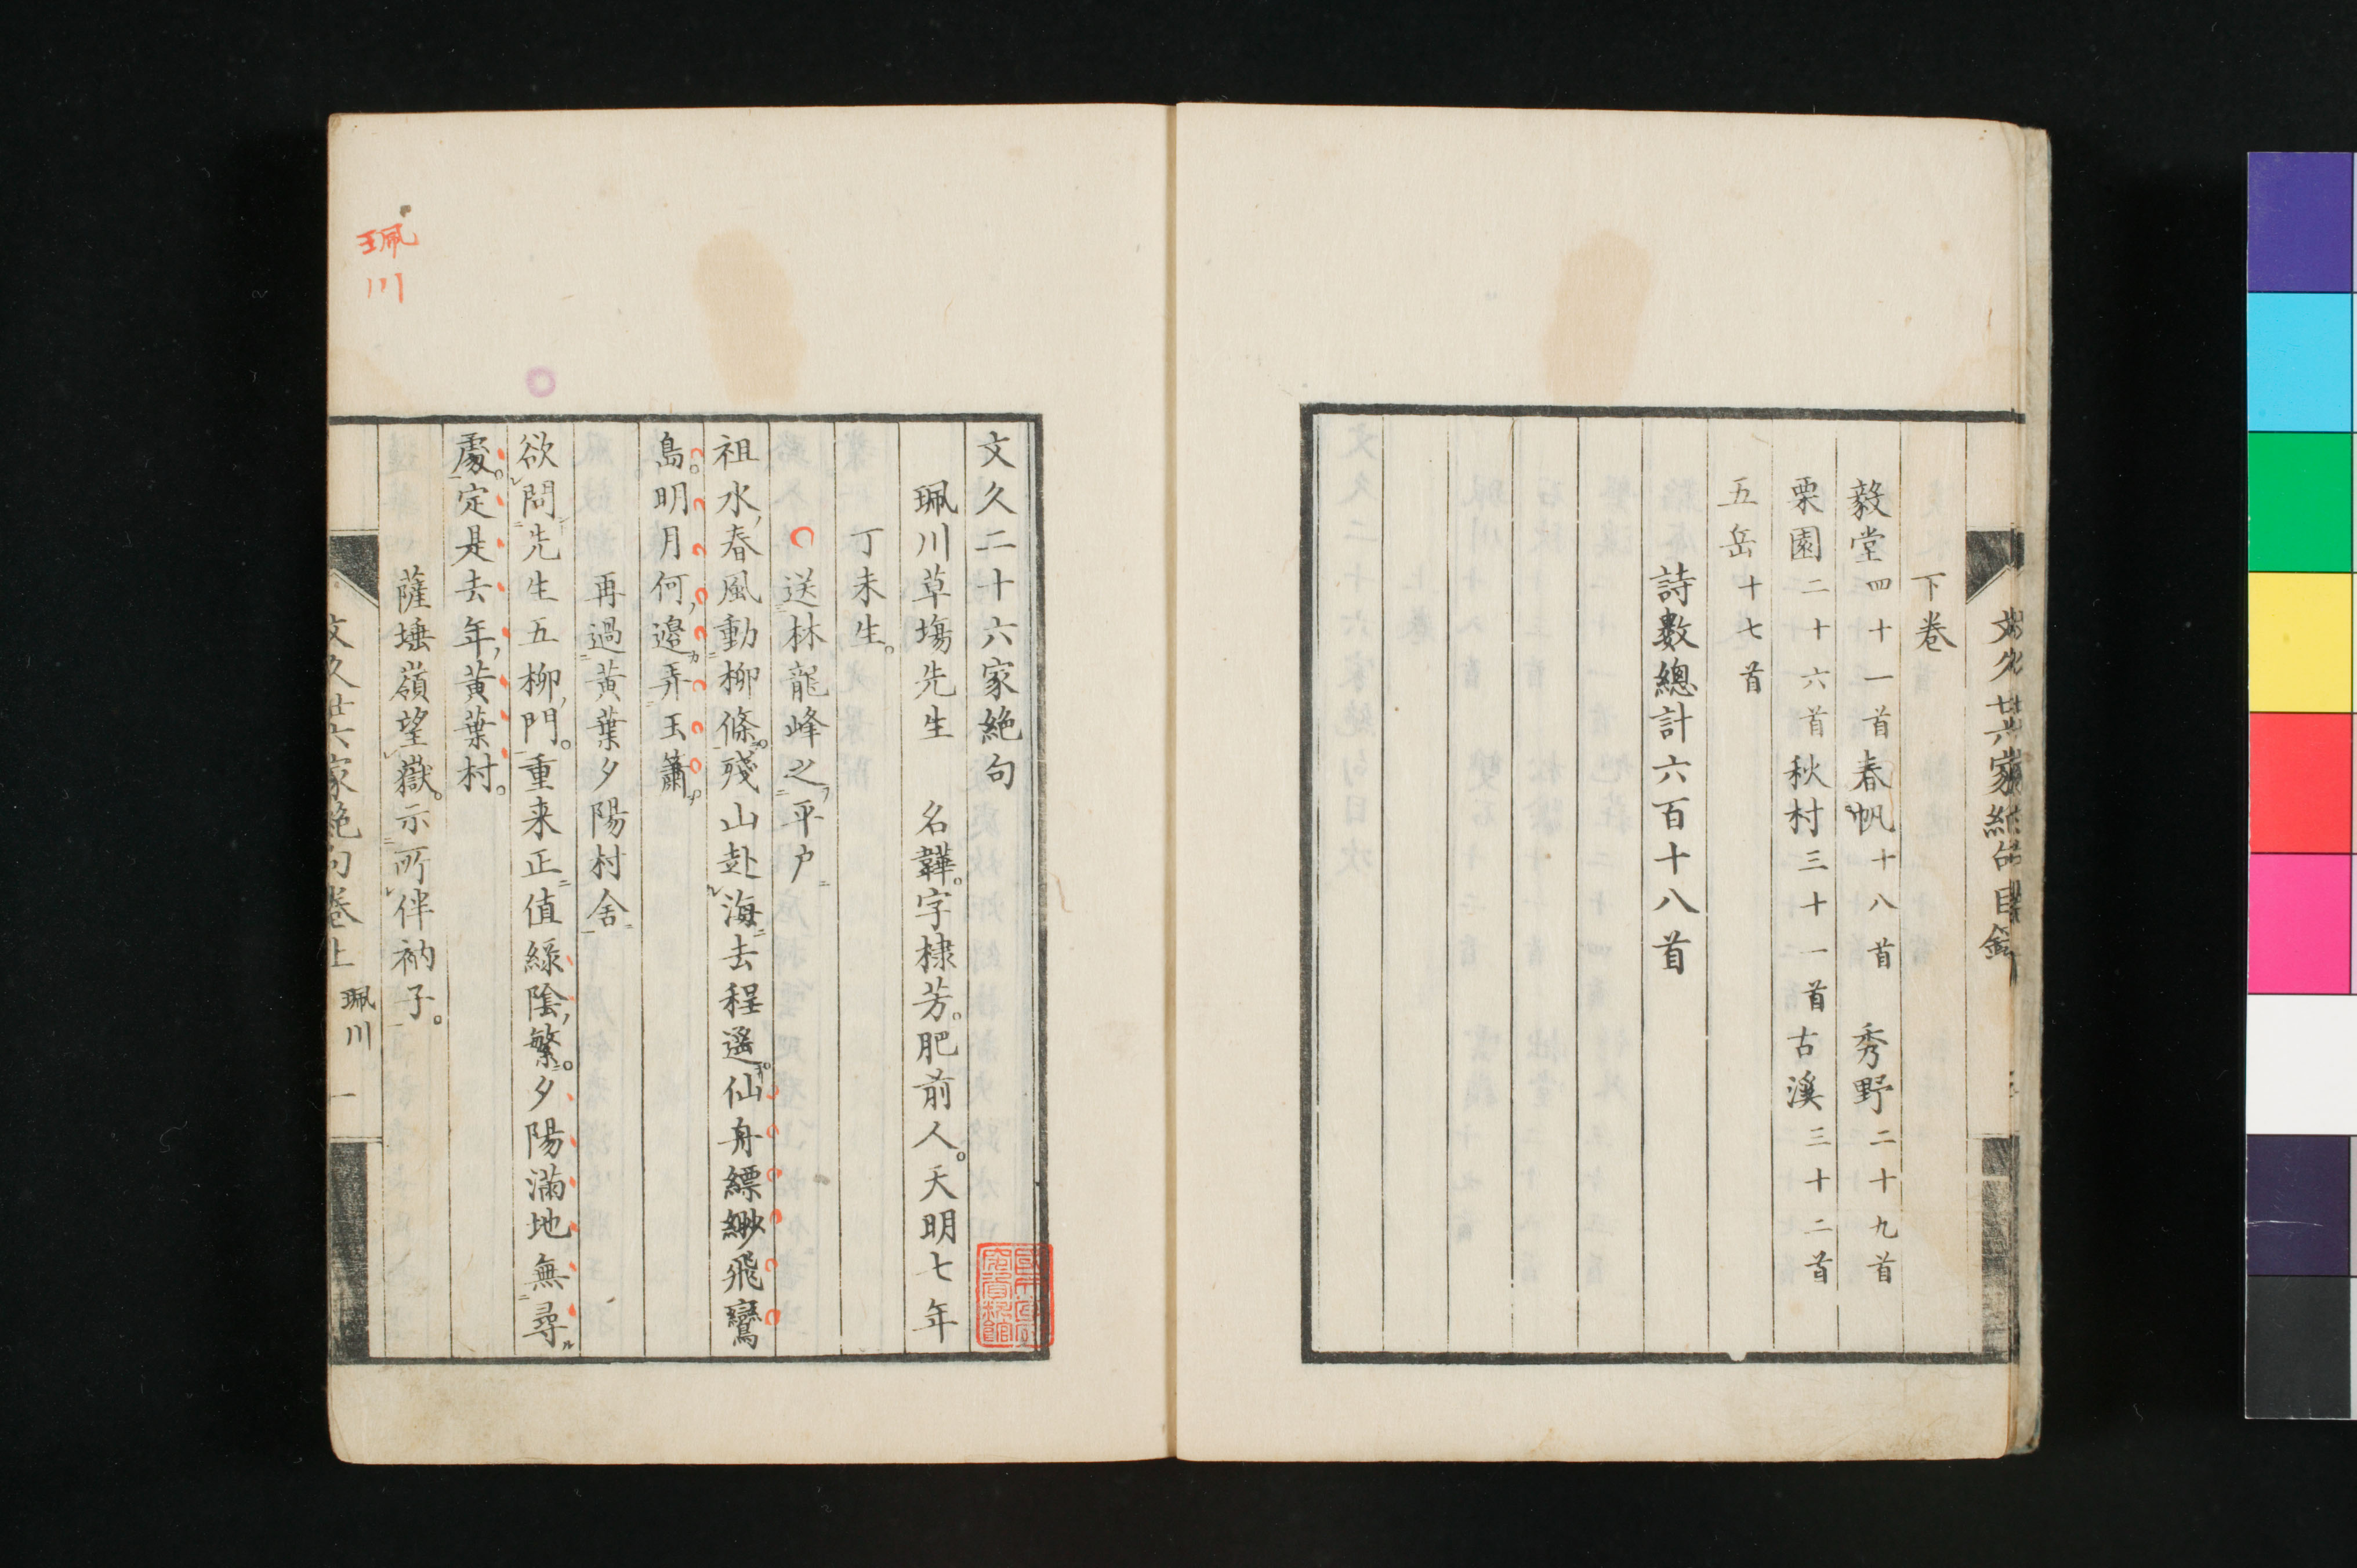 下卷
毅堂四十一首春帆十八首　秀野二十九首
栗園二十六首秋村三十一首古溪三十二首
五岳十七首
詩數總計六百十八首
文久二十六家絶句
珮川草塲先生　名韡。字棣芳。肥前人。天明七年
丁未生。
送林龍峰之平戸
祖水春風動柳條。殘山赴海去程遙。仙舟縹緲飛鸞
島。明月何邊弄玉簫。
再過黄葉夕陽村舍
欲問先生五柳門。重来正值綠陰繁。夕陽滿地無尋
處。定是去年黄葉村。
薩埵嶺望嶽。示所伴衲子。
文久廿六家絶句卷上　珮川　一
珮川